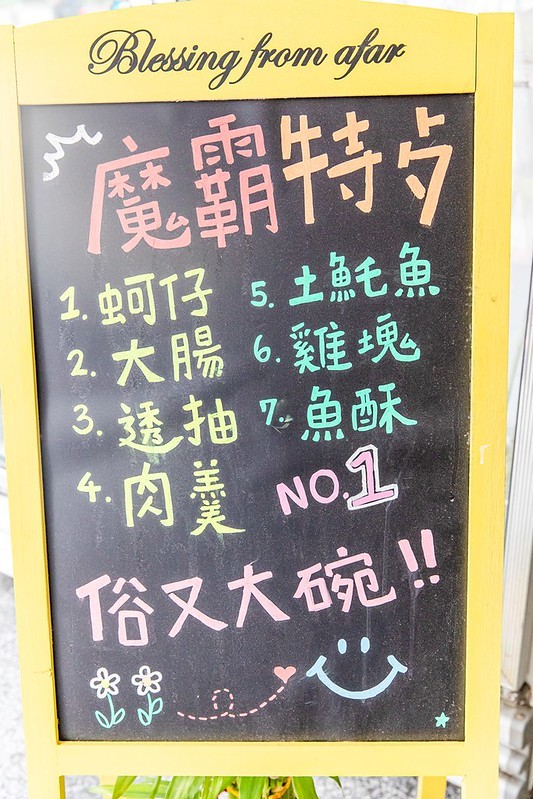 Blessing from afar
魔霸特歺
1. 蚵仔
2. 大腸
3. 透抽
4. 肉羹
5. 土魠魚
6. 雞塊
7. 魚酥
NO.1
俗又大碗!!